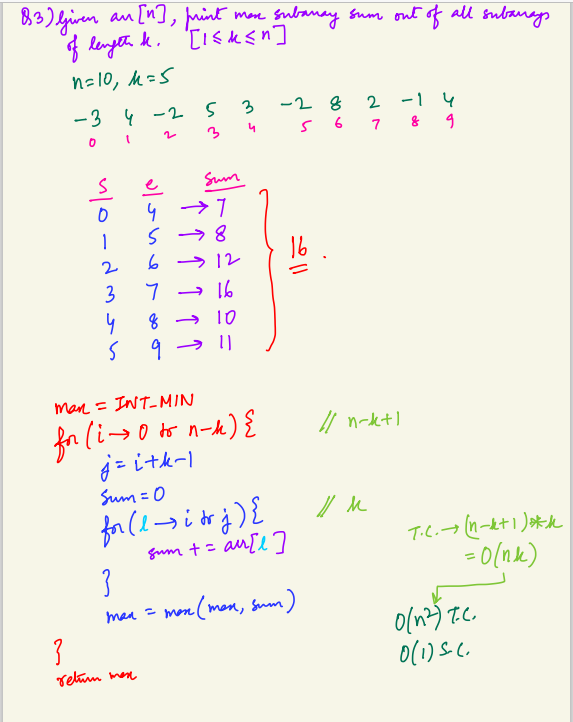 Q3) Given arr[n], print max subarray sum out of all subarrays
of length k. [1 ≤ k ≤ n]
n=10, k=5
-3 4 -2 5 3 -2 8 2 -1 4
0 1 2 3 4 5 6 7 8 9
S e Sum
0 4 → 7
1 5 → 8
2 6 → 12
3 7 → 16
4 8 → 10
5 9 → 11
16.
max = INT_MIN
for (i → 0 to n-k) { // n-k+1
j = i+k-1
Sum = 0
for (l → i to j) { // k
sum += arr[l]
}
max = max(max, sum)
}
return max
T.C. → (n-k+1)*k
= O(nk)
O(n²) T.C.
O(1) S.C.